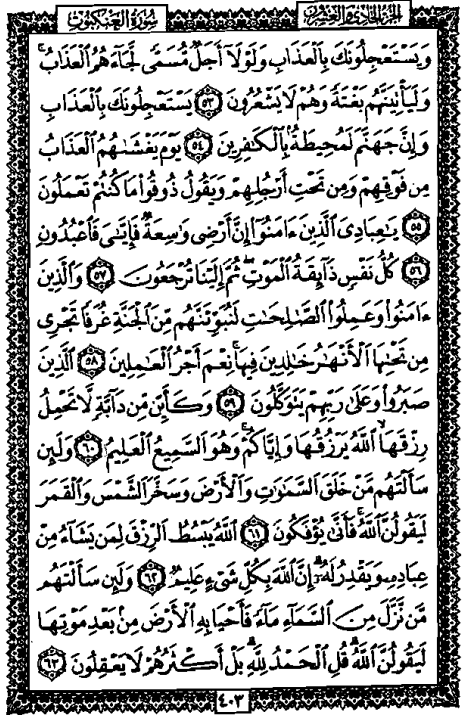 الجزء الحادي والعشرون
سورة العنكبوت
وَيَسْتَعْجِلُونَكَ بِٱلْعَذَابِ وَلَوْلَآ أَجَلٌ مُّسَمًّى لَّجَآءَهُمُ ٱلْعَذَابُ ۚ
وَلَيَأْتِيَنَّهُم بَغْتَةً وَهُمْ لَا يَشْعُرُونَ ٥٣ يَسْتَعْجِلُونَكَ بِٱلْعَذَابِ
وَإِنَّ جَهَنَّمَ لَمُحِيطَةٌۢ بِٱلْكَٰفِرِينَ ٥٤ يَوْمَ يَغْشَىٰهُمُ ٱلْعَذَابُ
مِن فَوْقِهِمْ وَمِن تَحْتِ أَرْجُلِهِمْ وَيَقُولُ ذُوقُوا۟ مَا كُنتُمْ تَعْمَلُونَ
٥٥ يَٰعِبَادِىَ ٱلَّذِينَ ءَامَنُوٓا۟ إِنَّ أَرْضِى وَٰسِعَةٌ فَإِيَّٰىَ فَٱعْبُدُونِ
٥٦ كُلُّ نَفْسٍ ذَآئِقَةُ ٱلْمَوْتِ ۖ ثُمَّ إِلَيْنَا تُرْجَعُونَ ٥٧ وَٱلَّذِينَ
ءَامَنُوا۟ وَعَمِلُوا۟ ٱلصَّٰلِحَٰتِ لَنُبَوِّئَنَّهُم مِّنَ ٱلْجَنَّةِ غُرَفًا تَجْرِى
مِن تَحْتِهَا ٱلْأَنْهَٰرُ خَٰلِدِينَ فِيهَا ۚ نِعْمَ أَجْرُ ٱلْعَٰمِلِينَ ٥٨ ٱلَّذِينَ
صَبَرُوا۟ وَعَلَىٰ رَبِّهِمْ يَتَوَكَّلُونَ ٥٩ وَكَأَيِّن مِّن دَآبَّةٍ لَّا تَحْمِلُ
رِزْقَهَا ٱللَّهُ يَرْزُقُهَا وَإِيَّاكُمْ ۚ وَهُوَ ٱلسَّمِيعُ ٱلْعَلِيمُ ٦٠ وَلَئِن
سَأَلْتَهُم مَّنْ خَلَقَ ٱلسَّمَٰوَٰتِ وَٱلْأَرْضَ وَسَخَّرَ ٱلشَّمْسَ وَٱلْقَمَرَ
لَيَقُولُنَّ ٱللَّهُ ۖ فَأَنَّىٰ يُؤْفَكُونَ ٦١ ٱللَّهُ يَبْسُطُ ٱلرِّزْقَ لِمَن يَشَآءُ مِنْ
عِبَادِهِۦ وَيَقْدِرُ لَهُۥٓ ۚ إِنَّ ٱللَّهَ بِكُلِّ شَىْءٍ عَلِيمٌ ٦٢ وَلَئِن سَأَلْتَهُم
مَّن نَّزَّلَ مِنَ ٱلسَّمَآءِ مَآءً فَأَحْيَا بِهِ ٱلْأَرْضَ مِنۢ بَعْدِ مَوْتِهَا
لَيَقُولُنَّ ٱللَّهُ ۚ قُلِ ٱلْحَمْدُ لِلَّهِ ۚ بَلْ أَكْثَرُهُمْ لَا يَعْقِلُونَ ٦٣
٤٠٣